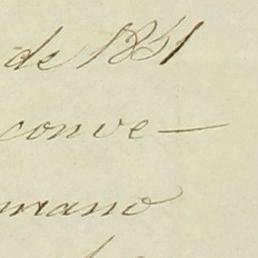 de 1851
conve-
mano